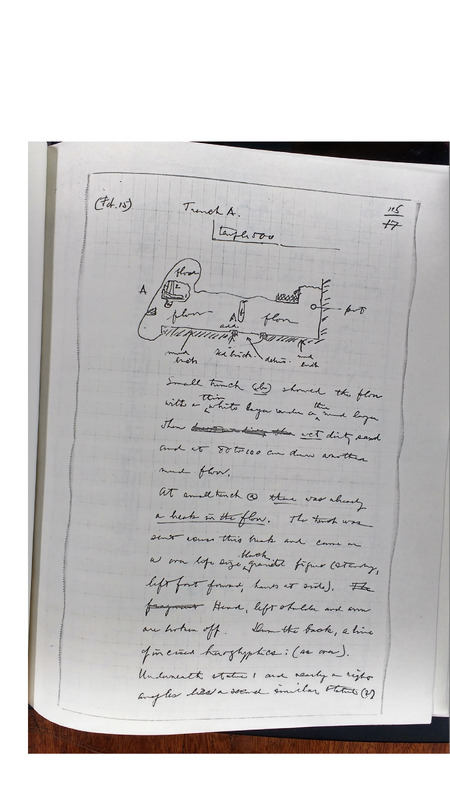 (Feb. 15) Trench A. 115
17
temple 500
floor
A
floor A floor pot
mud bricks red brick debris mud brick
Small trench showed the floor
with a thin white layer under a thin mud layer
then wet dirty sand
and at 80 to 100 cm down another
mud floor.
At small trench there was already
a break in the floor. The trench was
sent across this break and came on
a over life size black granite figure (standing,
left foot forward, hands at side). The
fragment Head, left shoulder and arm
are broken off. Down the back, a line
of incised hieroglyphics: (as over).
Underneath statue 1 and nearly a right
angles was a second similar statue (2)